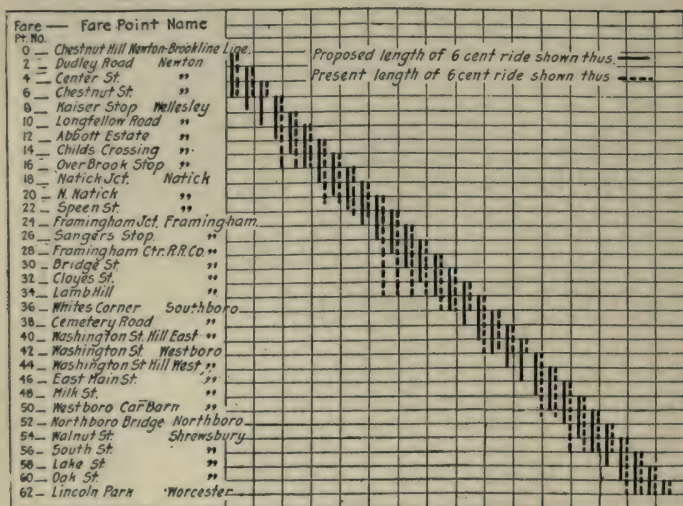 Fare — Fare Point Name
Pt. No.
0 — Chestnut Hill Newton-Brookline Line.
2 — Dudley Road Newton
4 — Center St. "
6 — Chestnut St. "
8 — Kaiser Stop Wellesley
10 — Longfellow Road "
12 — Abbott Estate "
14 — Childs Crossing "
16 — OverBrook Stop "
18 — Natick Jct. Natick
20 — N. Natick "
22 — Speen St. "
24 — Framingham Jct. Framingham.
26 — Sangers Stop. "
28 — Framingham Ctr. R.R. Co. "
30 — Bridge St. "
32 — Cloyes St. "
34 — Lamb Hill "
36 — Whites Corner Southboro
38 — Cemetery Road "
40 — Washington St. Hill East "
42 — Washington St. Westboro
44 — Washington St Hill West "
46 — East Main St. "
48 — Milk St. "
50 — Westboro Car Barn "
52 — Northboro Bridge Northboro
54 — Walnut St. Shrewsbury
56 — South St. "
58 — Lake St. "
60 — Oak St. "
62 — Lincoln Park Worcester
Proposed length of 6 cent ride shown thus.
Present length of 6 cent ride shown thus